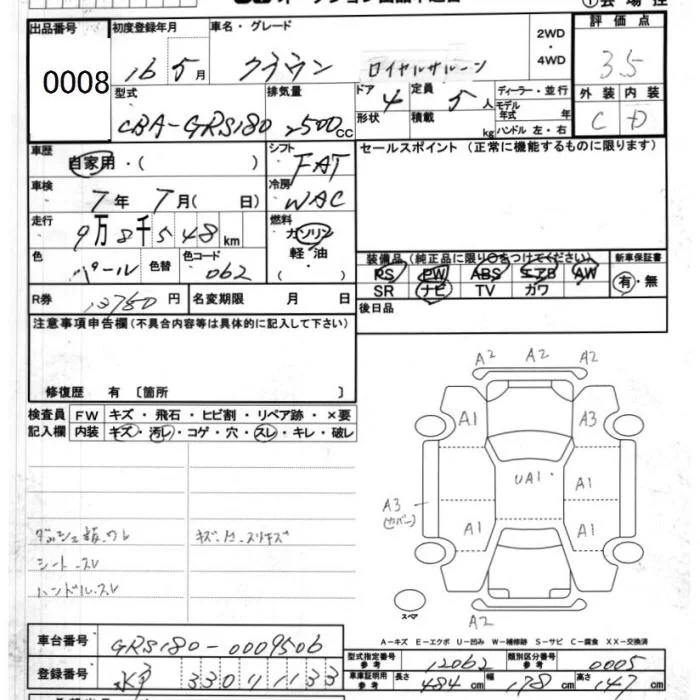 出品番号 初度登録年月 車名・グレード 2WD・4WD 評価点
0008 16 5月 クラウン ロイヤルサルーン 3.5
型式 排気量 ドア 4 定員 5人 ディーラー・並行 外装 内装
CBA-GRS180 2500cc 形状 積載 kg モデル年式 年 C D
ハンドル 左・右
車歴 自家用・( ) シフト FAT セールスポイント (正常に機能するものに限ります)
車検 7年 7月( 日) 冷房 WAC
走行 9万8千548km 燃料 ガソリン
色 パール 色替 色コード 062 軽・油 ( )
装備品 (純正品に限り○をつけてください) 新車保証書
PS PW ABS エアB AW 有・無
SR ナビ TV カワ
R券 12750円 名変期限 月 日 後日品
注意事項申告欄 (不具合内容等は具体的に記入して下さい)
修復歴 有 〔箇所 〕
検査員 FW キズ・飛石・ヒビ割・リペア跡・×要
記入欄 内装 キズ・汚レ・コゲ・穴・スレ・キレ・破レ
A2 A2 A2
A1 A3
UA1 A1
A3
A1 A1
シート スレ
ハンドル スレ
スペア
A2
A-キズ E-エクボ U-凹み W-補修跡 S-サビ C-腐食 XX-交換済
車台番号 GRS180-0009506
型式指定番号 参考 12062 類別区分番号 参考 0005
登録番号 330 1133
車庫証明用 参考 長さ 484cm 幅 178cm 高さ 147cm